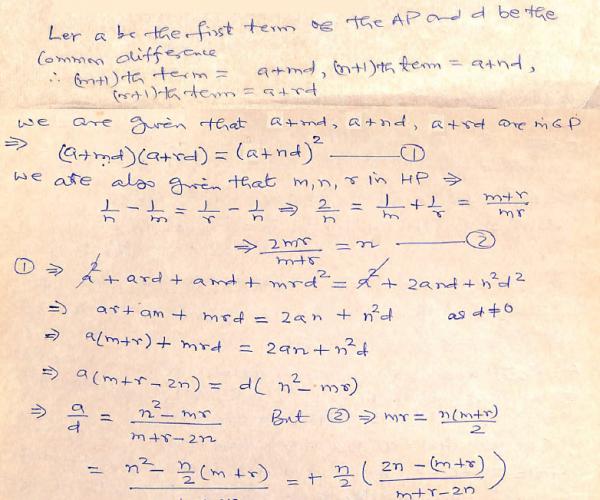 Let a be the first term of the AP and d be the
common difference
∴ (m+1)th term = a+md, (n+1)th term = a+nd,
(r+1)th term = a+rd
we are given that a+md, a+nd, a+rd are in GP
⇒ (a+md)(a+rd) = (a+nd)² ——— ①
we are also given that m,n,r in HP ⇒
1/n - 1/m = 1/r - 1/n ⇒ 2/n = 1/m + 1/r = m+r/mr
⇒ 2mr/m+r = n ——— ②
① ⇒ a² + ard + amd + mrd² = a² + 2and + n²d²
⇒ ar + am + mrd = 2an + n²d as d≠0
⇒ a(m+r) + mrd = 2an + n²d
⇒ a(m+r-2n) = d(n²-mr)
⇒ a/d = n²-mr/m+r-2n But ② ⇒ mr = n(m+r)/2
= n² - n/2 (m+r) = + n/2 (2n-(m+r)/m+r-2n)